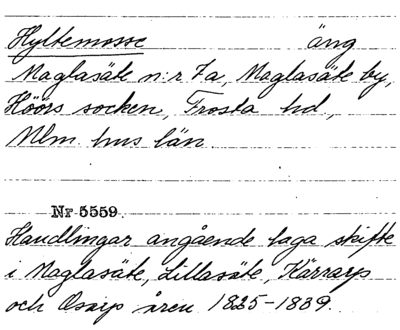 Hyltemosse äng
Maglasäte n:r 7a, Maglasäte by,
Höörs socken, Frosta hd,
Mlm. hus län.
Nr 5559.
Handlingar angående laga skifte
i Maglasäte, Lillasäte, Kärrarp
och Osarp åren 1825-1839.